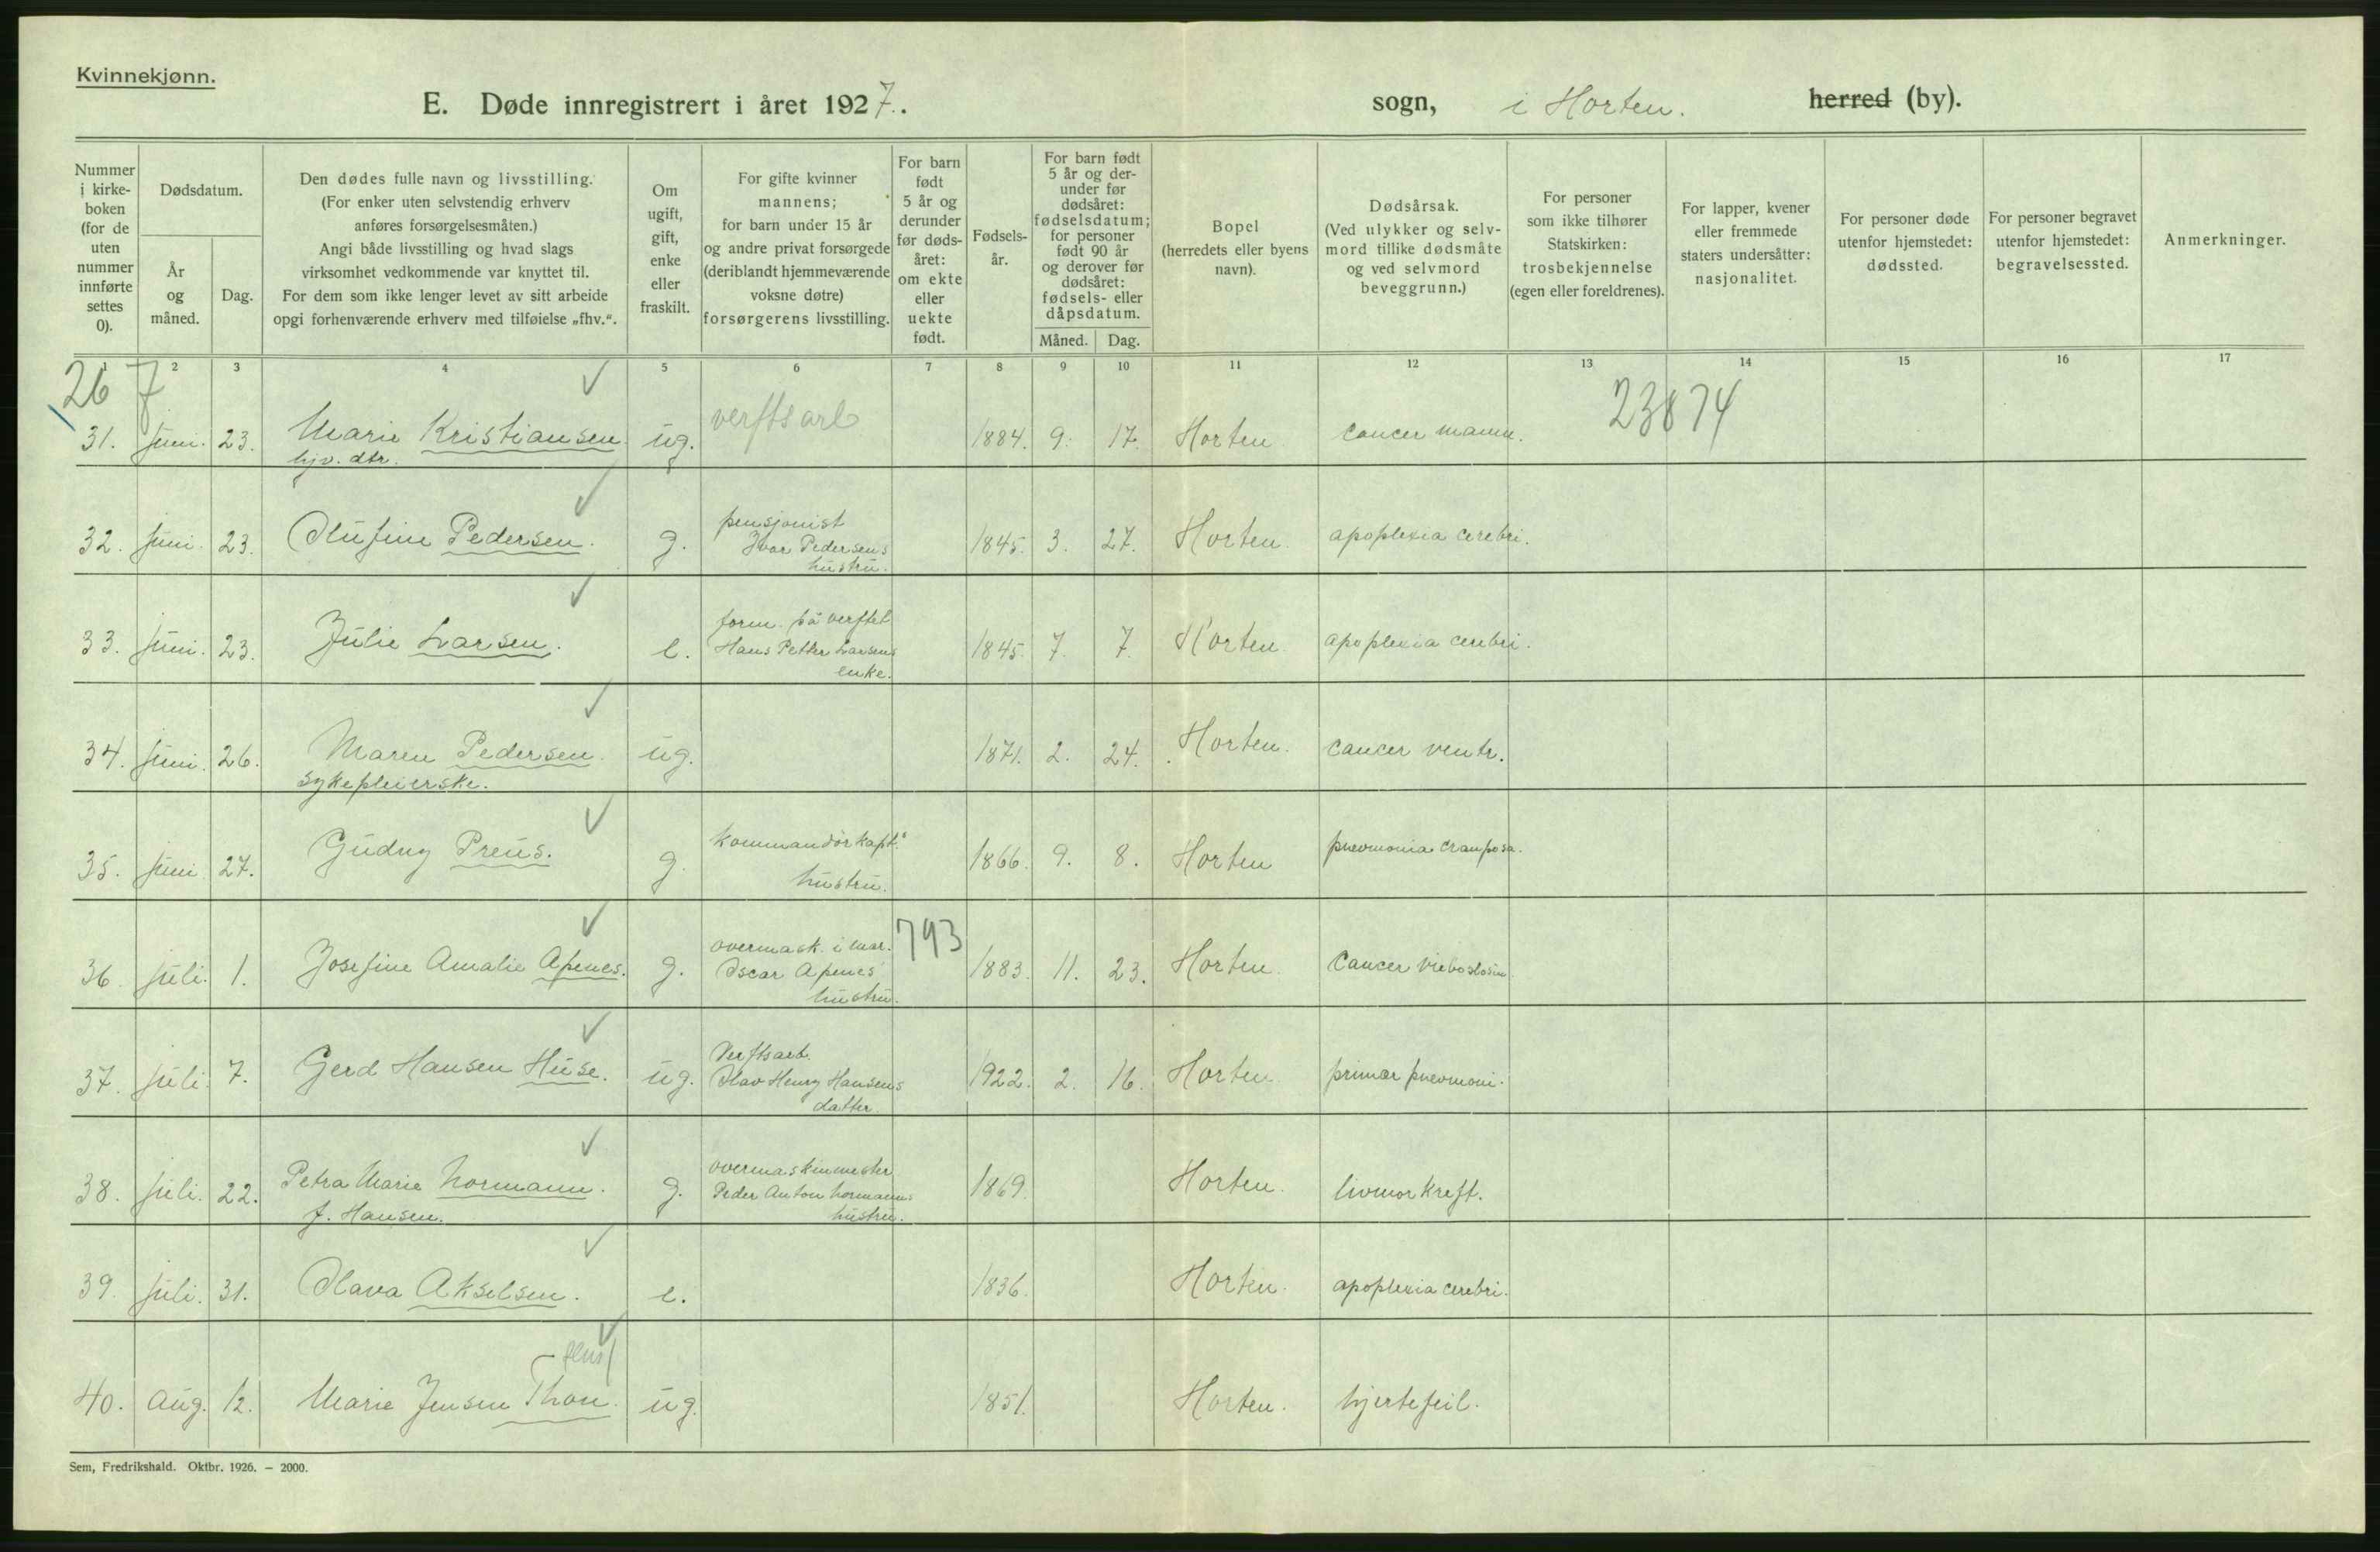 Kvinnekjønn.
E. Døde innregistrert i året 1927.
sogn, i Horten. herred (by).
Nummer i kirke-boken (for de uten nummer innførte settes 0).
Dødsdatum.
År og måned.
Dag.
Den dødes fulle navn og livsstilling.
(For enker uten selvstendig erhverv
anføres forsørgelsesmåten.)
Angi både livsstilling og hvad slags
virksomhet vedkommende var knyttet til.
For dem som ikke lenger levet av sitt arbeide
opgi forhenværende erhverv med tilføielse „fhv.“.
Om ugift, gift, enke eller fraskilt.
For gifte kvinner
mannens;
for barn under 15 år
og andre privat forsørgede
(deriblandt hjemmeværende
voksne døtre)
forsørgerens livsstilling.
For barn født 5 år og derunder før døds-året: om ekte eller uekte født.
Fødsels-år.
For barn født 5 år og der-under før dødsåret: fødselsdatum; for personer født 90 år og derover før dødsåret: fødsels- eller dåpsdatum.
Måned. Dag.
Bopel
(herredets eller byens
navn).
Dødsårsak.
(Ved ulykker og selv-
mord tillike dødsmåte
og ved selvmord
beveggrunn.)
For personer
som ikke tilhører
Statskirken:
trosbekjennelse
(egen eller foreldrenes).
For lapper, kvener
eller fremmede
staters undersåtter:
nasjonalitet.
For personer døde
utenfor hjemstedet:
dødssted.
For personer begravet
utenfor hjemstedet:
begravelsessted.
Anmerkninger.
1 2 3 4 5 6 7 8 9 10 11 12 13 14 15 16 17
26 7
23874
31. juni. 23. Marie Kristiansen ug. verftsarb 1884. 9. 17. Horten cancer mamm.
hjv. dtr.
32. juni. 23. Olufine Pedersen. g. pensjonist 1845. 3. 27. Horten. apoplexia cerebri.
Ivar Pedersens
hustru.
33. juni. 23. Julie Larsen. e. form. på verftet 1845. 7. 7. Horten. apoplexia cerebri.
Hans Petter Larsens
enke.
34. juni. 26. Maren Pedersen. ug. 1871. 2. 24. Horten. cancer ventr.
sykepleierske.
35. juni. 27. Gudny Preus. g. kommandørkapt.s 1866. 9. 8. Horten pnevmonia crouposa.
hustru.
36. juli. 1. Josefine Amalie Apenes. g. overmask. i mar. 793 1883. 11. 23. Horten. Cancer
Oscar Apenes
hustru.
37. juli. 7. Gerd Hansen Huse. ug. Verftsarb. 1922. 2. 16. Horten. primær pnevmoni.
Olav Henry Hansens
datter.
38. juli. 22. Petra Marie Normann. g. overmaskinmester 1869. Horten. livmorkreft.
f. Hansen. Peder Anton Normanns
hustru.
39. juli. 31. Olava Akselsen. e. 1836. Horten. apoplexia cerebri.
40. aug. 12. Marie Jensen Thon. ug. 1851. Horten. hjertefeil.
Sem, Fredrikshald. Oktbr. 1926. — 2000.